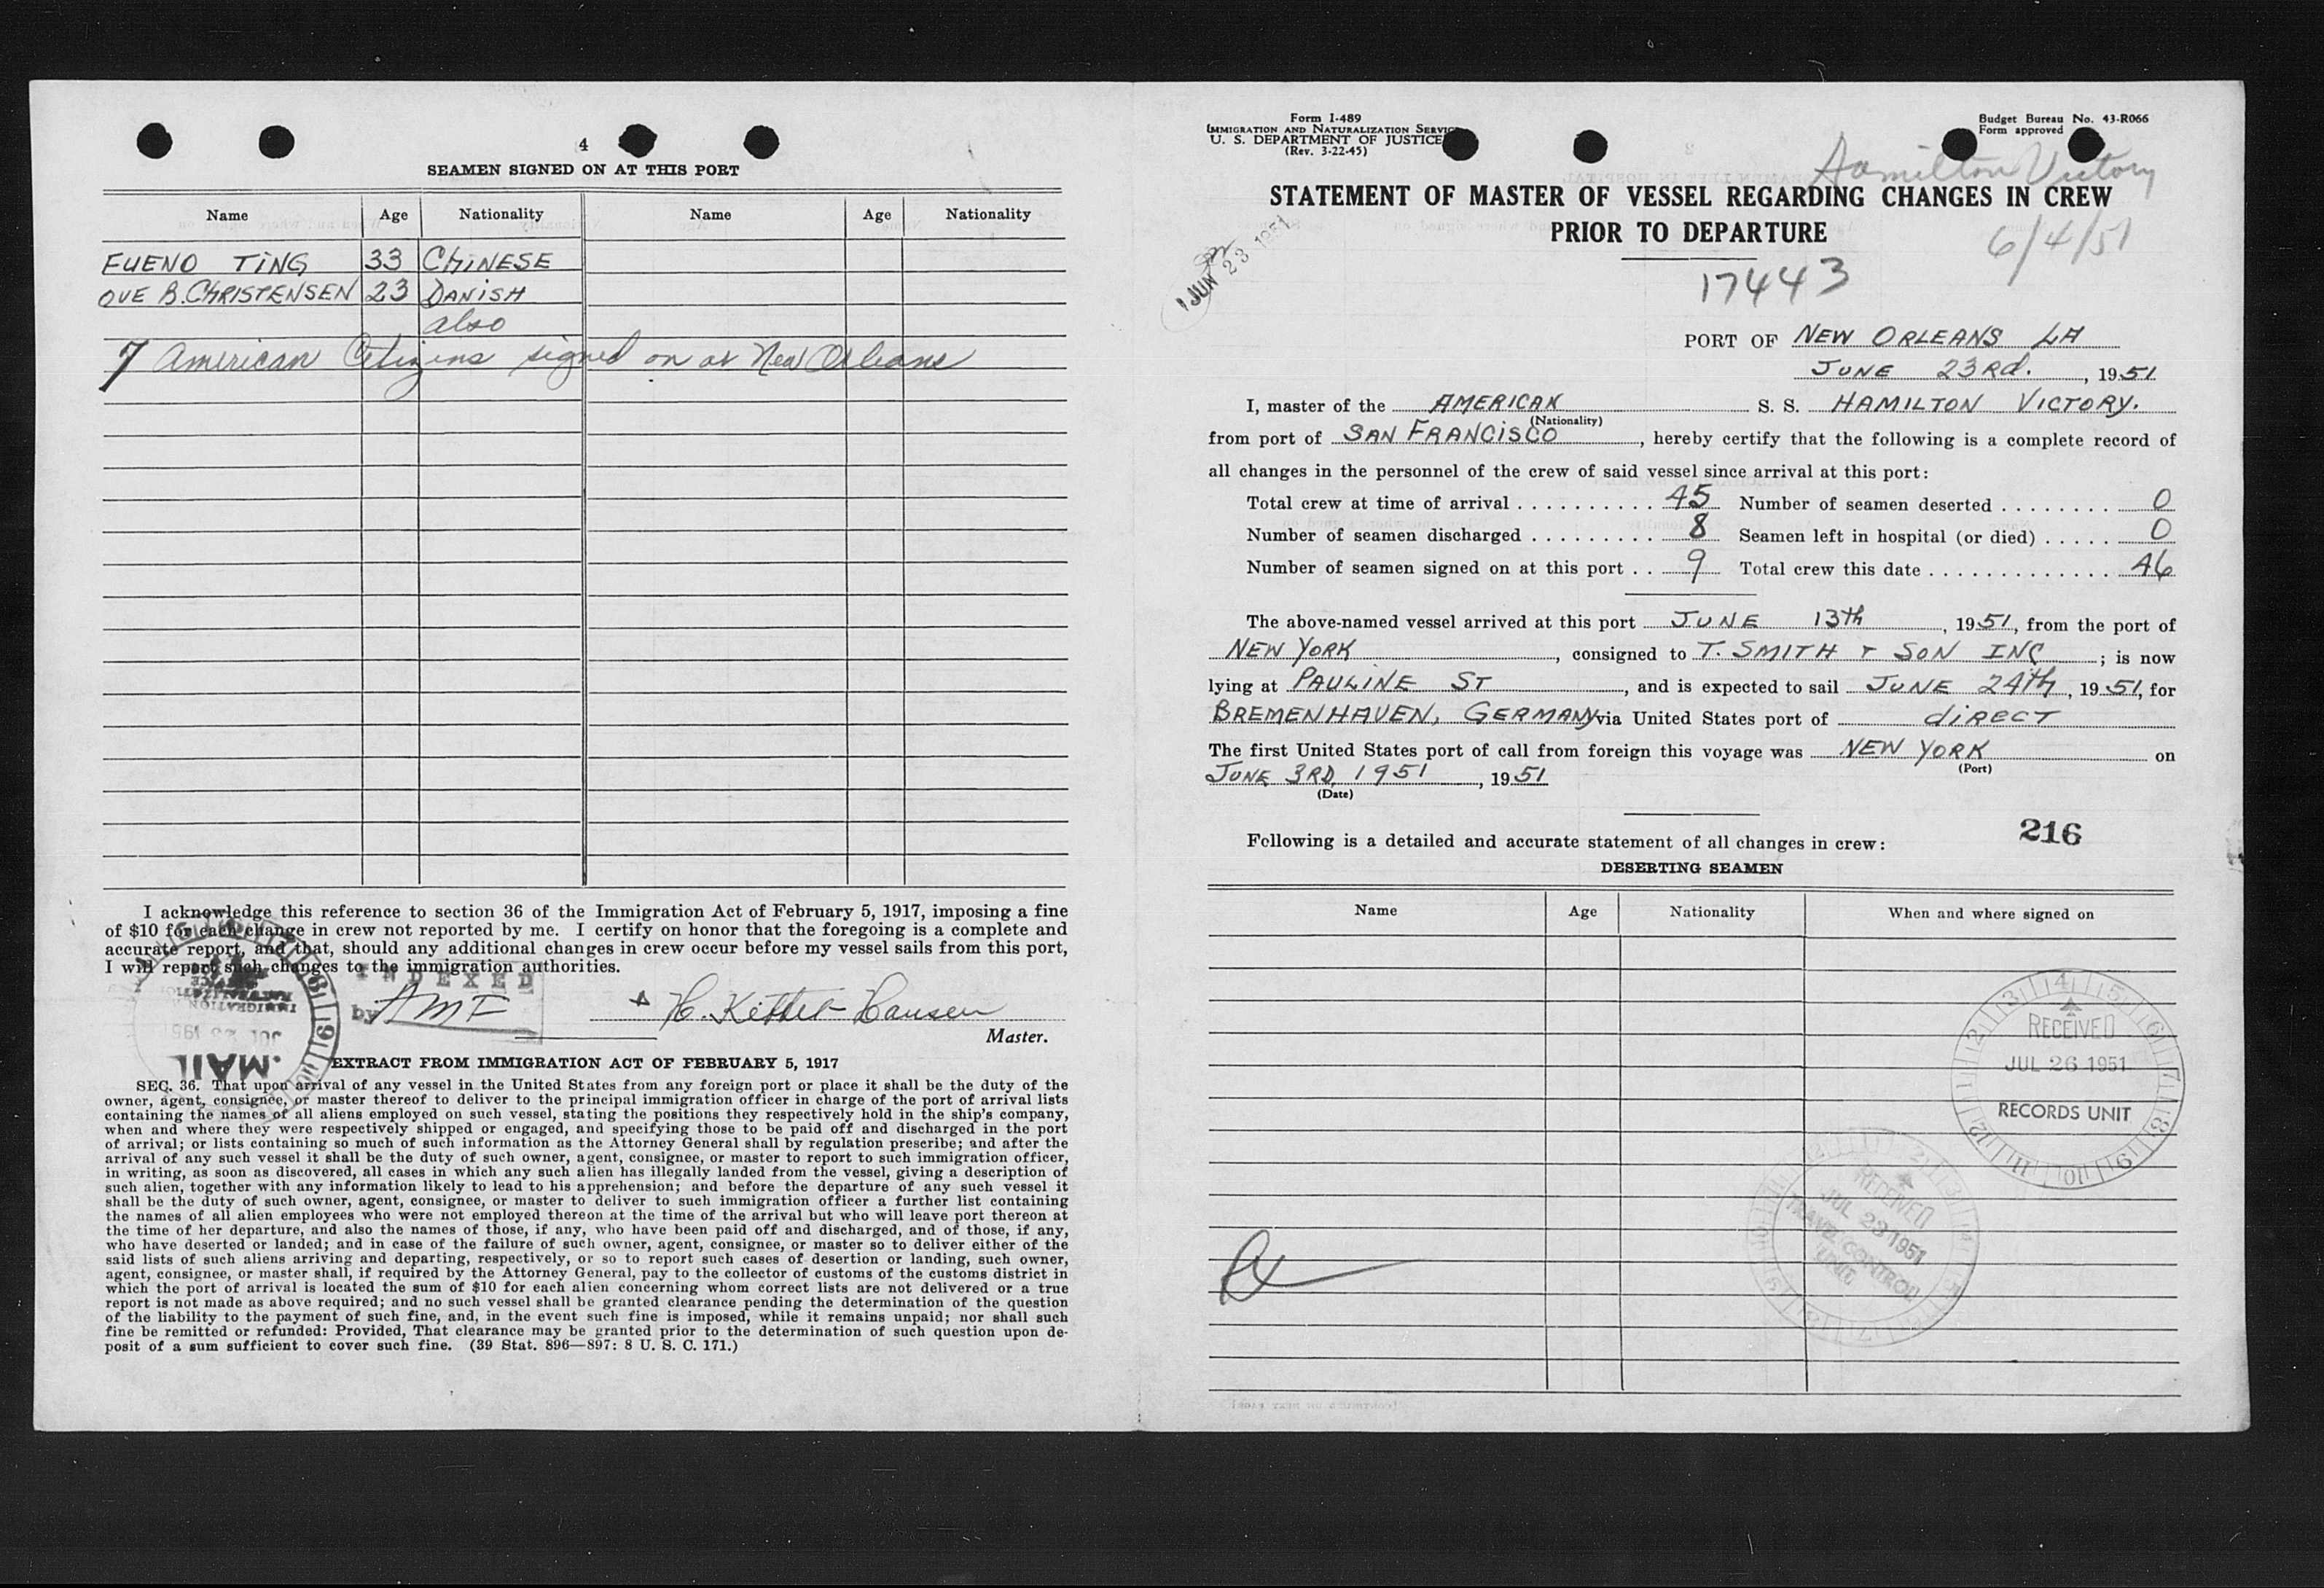 4
SEAMEN SIGNED ON AT THIS PORT
Name Age Nationality Name Age Nationality
FUENO TING 33 CHINESE
OVE B. CHRISTENSEN 23 DANISH
also
7 American Citizens signed on at New Orleans
I acknowledge this reference to section 36 of the Immigration Act of February 5, 1917, imposing a fine
of $10 for each change in crew not reported by me. I certify on honor that the foregoing is a complete and
accurate report, and that, should any additional changes in crew occur before my vessel sails from this port,
I will report such changes to the immigration authorities.
INDEXED
by AMF
H.
Master.
MAIL
EXTRACT FROM IMMIGRATION ACT OF FEBRUARY 5, 1917
SEC. 36. That upon arrival of any vessel in the United States from any foreign port or place it shall be the duty of the
owner, agent, consignee, or master thereof to deliver to the principal immigration officer in charge of the port of arrival lists
containing the names of all aliens employed on such vessel, stating the positions they respectively hold in the ship's company,
when and where they were respectively shipped or engaged, and specifying those to be paid off and discharged in the port
of arrival; or lists containing so much of such information as the Attorney General shall by regulation prescribe; and after the
arrival of any such vessel it shall be the duty of such owner, agent, consignee, or master to report to such immigration officer,
in writing, as soon as discovered, all cases in which any such alien has illegally landed from the vessel, giving a description of
such alien, together with any information likely to lead to his apprehension; and before the departure of any such vessel it
shall be the duty of such owner, agent, consignee, or master to deliver to such immigration officer a further list containing
the names of all alien employees who were not employed thereon at the time of the arrival but who will leave port thereon at
the time of her departure, and also the names of those, if any, who have been paid off and discharged, and of those, if any,
who have deserted or landed; and in case of the failure of such owner, agent, consignee, or master so to deliver either of the
said lists of such aliens arriving and departing, respectively, or so to report such cases of desertion or landing, such owner,
agent, consignee, or master shall, if required by the Attorney General, pay to the collector of customs of the customs district in
which the port of arrival is located the sum of $10 for each alien concerning whom correct lists are not delivered or a true
report is not made as above required; and no such vessel shall be granted clearance pending the determination of the question
of the liability to the payment of such fine, and, in the event such fine is imposed, while it remains unpaid; nor shall such
fine be remitted or refunded: Provided, That clearance may be granted prior to the determination of such question upon de-
posit of a sum sufficient to cover such fine. (39 Stat. 896—897: 8 U. S. C. 171.)
Form I-489
IMMIGRATION AND NATURALIZATION SERVICE
U. S. DEPARTMENT OF JUSTICE
(Rev. 3-22-45)
Budget Bureau No. 43-R066
Form approved
Hamilton Victory
6/4/51
STATEMENT OF MASTER OF VESSEL REGARDING CHANGES IN CREW
PRIOR TO DEPARTURE
JUN 23 1951
17443
PORT OF NEW ORLEANS LA
JUNE 23Rd., 1951
I, master of the AMERICAN S. S. HAMILTON VICTORY.
(Nationality)
from port of SAN FRANCISCO, hereby certify that the following is a complete record of
all changes in the personnel of the crew of said vessel since arrival at this port:
Total crew at time of arrival 45 Number of seamen deserted 0
Number of seamen discharged 8 Seamen left in hospital (or died) 0
Number of seamen signed on at this port 9 Total crew this date 46
The above-named vessel arrived at this port JUNE 13th, 1951, from the port of
NEW YORK, consigned to T. SMITH + SON INC; is now
lying at PAULINE ST, and is expected to sail JUNE 24th, 1951, for
BREMENHAVEN, GERMANY via United States port of DIRECT
The first United States port of call from foreign this voyage was NEW YORK on
(Port)
JUNE 3RD, 1951, 1951
(Date)
216
Following is a detailed and accurate statement of all changes in crew:
DESERTING SEAMEN
Name Age Nationality When and where signed on
RECEIVED
JUL 26 1951
RECORDS UNIT
RECEIVED
JUL 23 1951
TRAVEL CONTROL
UNIT